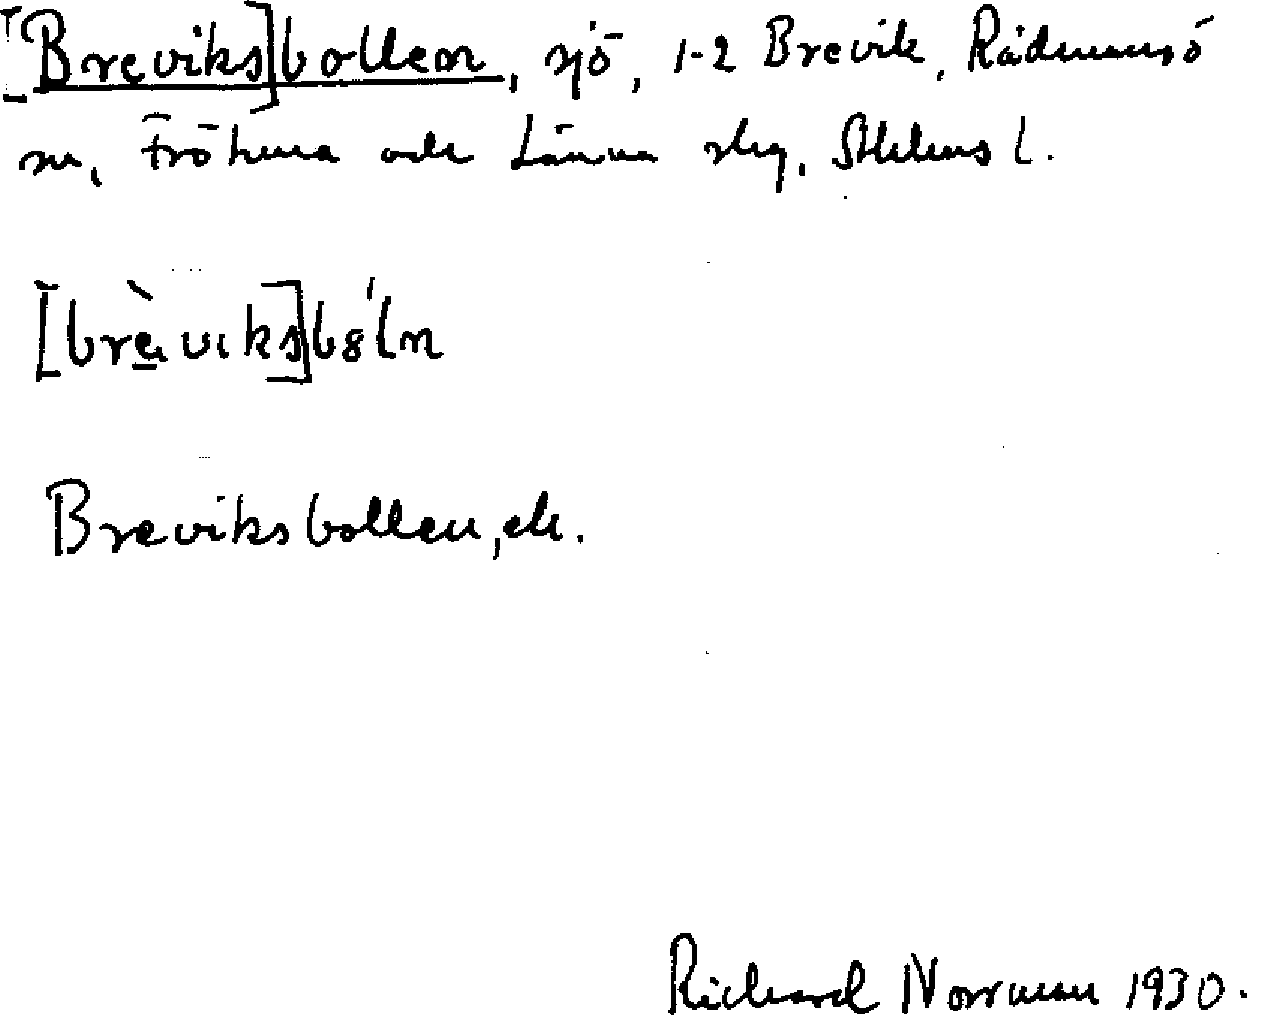 [Breviks]bollen, sjö, 1-2 Brevik, Rådmansö
sn, Frötuna och Länna skg, Sthlms l.
[brèviks]bol'n
Breviksbollen, ek.
Richard Norrman 1930.